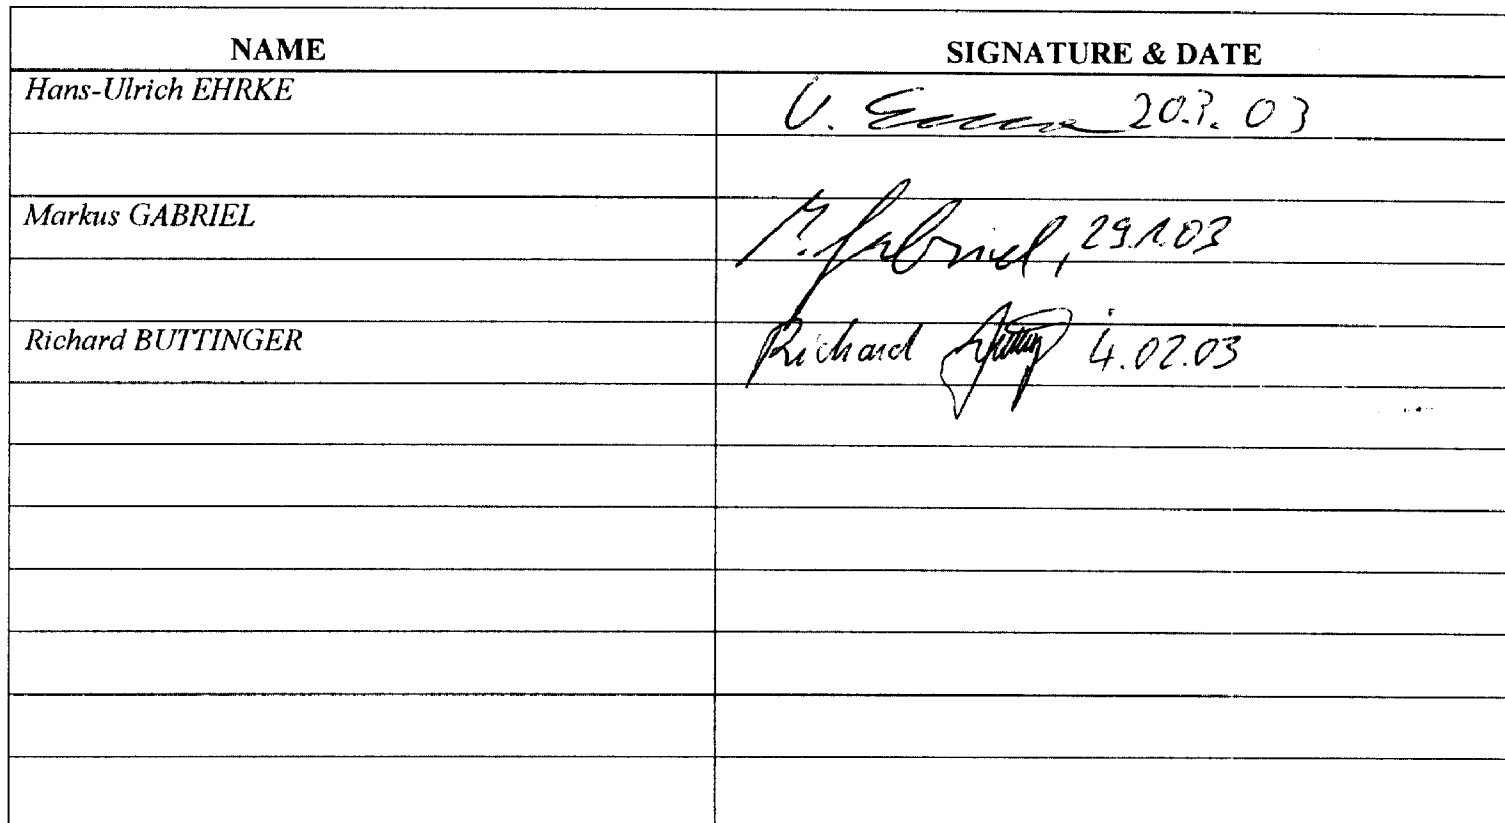 NAME SIGNATURE & DATE
Hans-Ulrich EHRKE U. 20.3.03
Markus GABRIEL M. Gabriel, 29.1.03
Richard BUTTINGER Richard 4.02.03